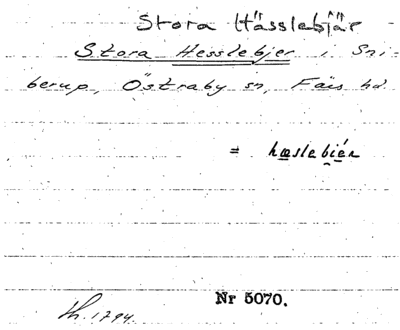 Stora Hässlebjär
Stora Hesslebjer i Sni-
berup, Östraby sn, Färs hd
= hæslebiér
Nr 5070.
Th. 1794.